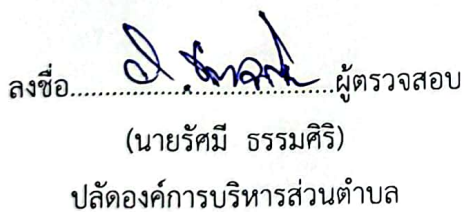 ลงชื่อ................................ผู้ตรวจสอบ
(นายรัศมี ธรรมศิริ)
ปลัดองค์การบริหารส่วนตำบล